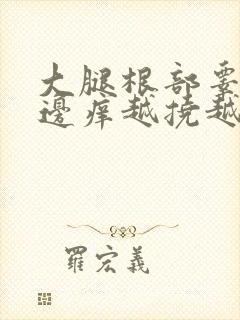 大腿根部要
邊痒越撓越
羅宏義